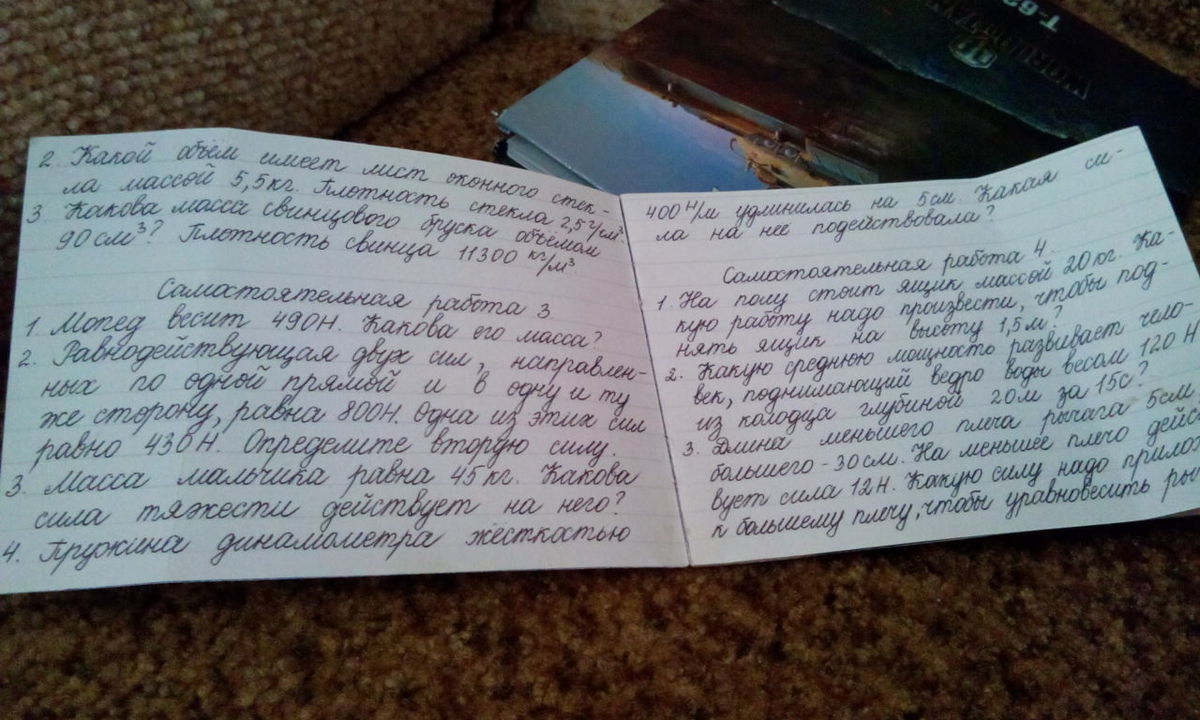 2. Какой объём имеет лист оконного стек-
ла массой 5,5кг. Плотность стекла 2,5 г/см³.
3. Какова масса свинцового бруска объёмом
90 см³? Плотность свинца 11300 кг/м³.
Самостоятельная работа 3
1. Мопед весит 490Н. Какова его масса?
2. Равнодействующая двух сил, направлен-
ных по одной прямой и в одну и ту
же сторону, равна 800Н. Одна из этих сил
равно 430Н. Определите вторую силу.
3. Масса мальчика равна 45 кг. Какова
сила тяжести действует на него?
4. Пружина динамометра жёсткостью
400 Н/м удлинилась на 5см. Какая си-
ла на нее подействовала?
Самостоятельная работа 4.
1. На полу стоит ящик массой 20 кг. Ка-
кую работу надо произвести, чтобы под-
нять ящик на высоту 1,5м?
2. Какую среднюю мощность развивает чело-
век, поднимающий ведро воды весом 120 Н
из колодца глубиной 20м за 15с?
3. Длина меньшего плеча рычага 5см,
большего - 30см. На меньшее плечо дейс
вует сила 12Н. Какую силу надо прилож
к большему плечу, чтобы уравновесить ры
T-62